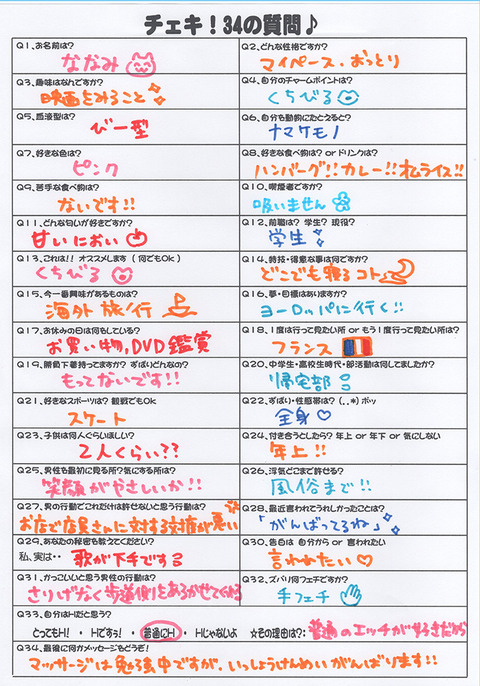 チェキ！34の質問♪
Q1、お名前は？
ななみ
Q2、どんな性格ですか？
マイペース、おっとり
Q3、趣味はなんですか？
映画をみること
Q4、自分のチャームポイントは？
くちびる
Q5、血液型は？
びー型
Q6、自分を動物にたとえると？
ナマケモノ
Q7、好きな色は？
ピンク
Q8、好きな食べ物は？ or ドリンクは？
ハンバーグ!!カレー!!オムライス!!
Q9、苦手な食べ物は？
ないです!!
Q10、喫煙者ですか？
吸いません
Q11、どんな匂いが好きですか？
甘いにおい
Q12、前職は？ 学生？ 現役？
学生
Q13、これは！！ オススメします （ 何でもOk ）
くちびる
Q14、特技・得意な事は何ですか？
どこでも寝るコト
Q15、今一番興味があるものは？
海外旅行
Q16、夢・目標はありますか？
ヨーロッパに行く!!
Q17、お休みの日は何もしている？
お買い物,DVD鑑賞
Q18、1度は行って見たい所 or もう1度行って見たい所は？
フランス
Q19、勝負下着持ってますか？ ずばりどんなの？
もってないです!!
Q20、中学生・高校生時代・部活動は何してましたか？
帰宅部
Q21、好きなスポーツは？ 観戦でもOk
スケート
Q22、ずばり・性感帯は？ （．．*）ポッ
全身♡
Q23、子供は何人ぐらいほしい？
2人くらい??
Q24、付き合うとしたら？ 年上 or 年下 or 気にしない
年上!!
Q25、男性も最初に見る所？気にする所は？
笑顔がやさしいか!!
Q26、浮気どこまで許せる？
風俗まで!!
Q27、男の行動でこれだけは許せないと思う行動は？
お店で店員さんに対する対応が悪い
Q28、最近言われてうれしかったことは？
「がんばってるね」
Q29、あなたの秘密を教えてください？
私、実は・・ 歌が下手です
Q30、告白は 自分から or 言われたい
言われたい♡
Q31、かっこいいと思う男性の行動は？
さりげなく歩道側をあるかせてくれる
Q32、ズバリ何フェチですか？
手フェチ
Q33、自分はHだと思う？
とってもH！ ・ Hですぅ！ ・ 普通にH ・ Hじゃないよ ☆その理由は？：普通のエッチが好きだから
Q34、最後に何かメッセージもどうぞ！
マッサージは勉強中ですが、いっしょうけんめいがんばります!!